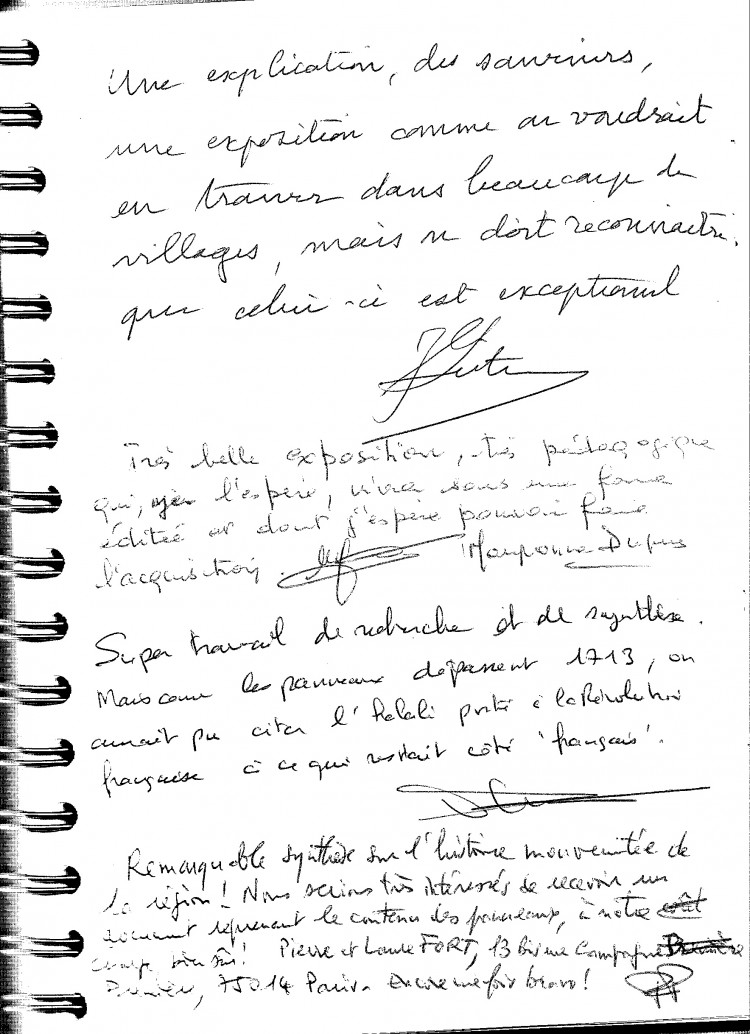 Une explication, des souvenirs,
une exposition comme on voudrait
en trouver dans beaucoup de
villages, mais on doit reconnaitre
que celui-ci est exceptionnel
Très belle exposition, très pédagogique
qui, je l'espère, vivra sous une forme
éditée et dont j'espère pouvoir faire
l'acquisition. Dupuis
Super travail de recherche et de synthèse.
Mais comme les panneaux dépassent 1713, on
aurait pu citer l'halali porté à la Révolution
française à ce qui restait côté 'français'.
Remarquable synthèse sur l'histoire mouvementée de
la région! Nous serions très intéressés de recevoir un
document reprenant le contenu des panneaux, à notre coût
bien sûr! Pierre et Laure FORT, 13 bis rue Campagne
75014 Paris. Encore une fois bravo!